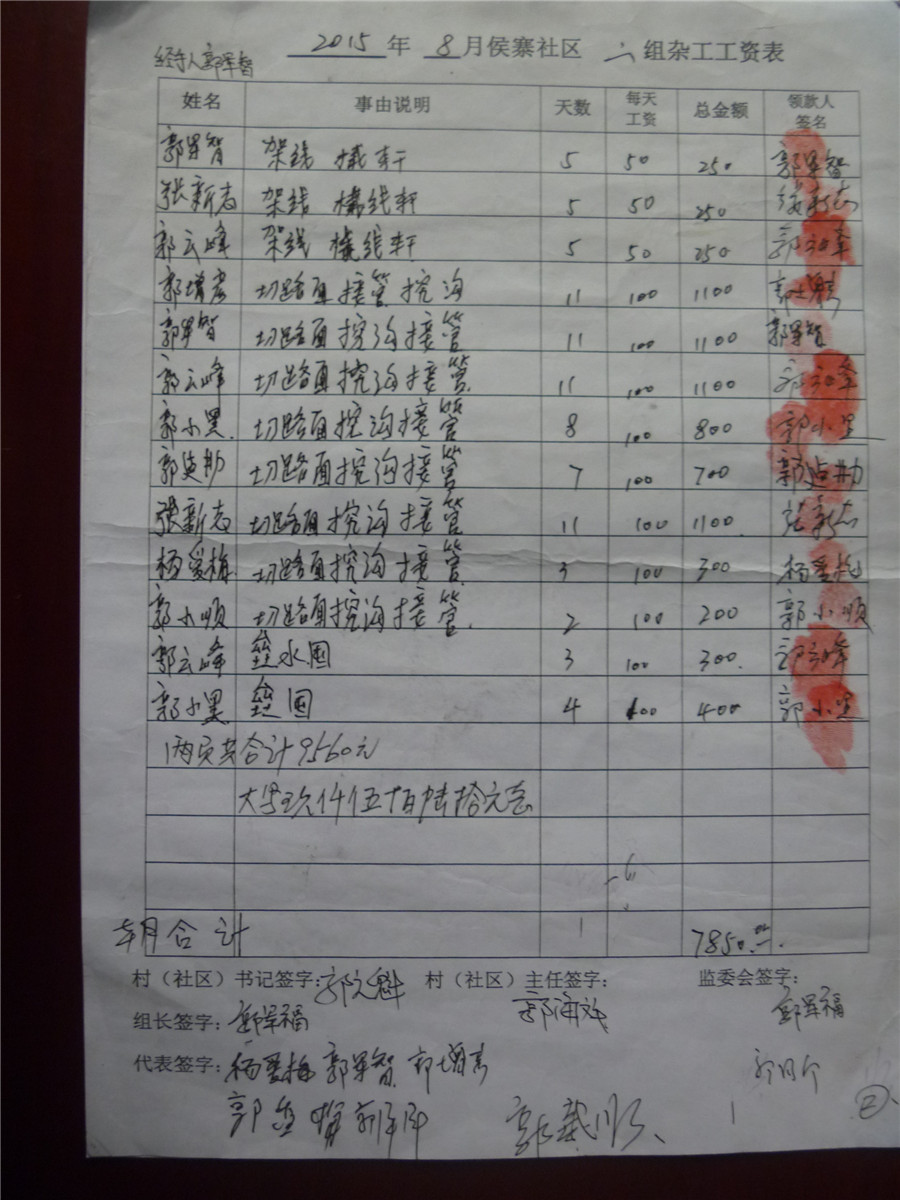 2015 年 8 月侯寨社区 六 组杂工工资表
经手人郭军智
姓名 事由说明 天数 每天工资 总金额 领款人签名
郭军智 架线 5 50 250 郭军智
张新志 架线 线轩 5 50 250 张新志
郭云峰 架线 线轩 5 50 250 郭云峰
郭增 切路面接管挖沟 11 100 1100
郭军智 切路面挖沟接管 11 100 1100 郭军智
郭云峰 切路面挖沟接管 11 100 1100 郭云峰
郭小黑 切路面挖沟接管 8 100 800 郭小黑
郭 切路面挖沟接管 7 100 700 郭
张新志 切路面挖沟接管 11 100 1100 张新志
杨爱梅 切路面挖沟接管 3 100 300 杨爱梅
郭小顺 切路面挖沟接管 2 100 200 郭小顺
郭云峰 垒水 3 100 300 郭云峰
郭小黑 垒 4 100 400 郭小黑
两页共合计9560元
大写玖仟伍百陆拾元
本月合计 7850.00
村（社区）书记签字： 郭 村（社区）主任签字： 郭海 监委会签字：
组长签字：郭军福 郭军福
代表签字：杨爱梅 郭军智 郭增
郭
②